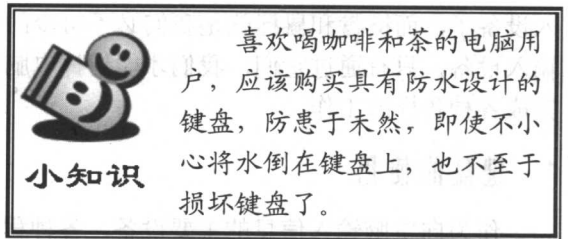 喜欢喝咖啡和茶的电脑用
户，应该购买具有防水设计的
键盘，防患于未然，即使不小
心将水倒在键盘上，也不至于
损坏键盘了。
小知识